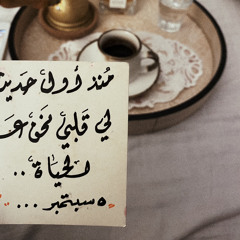 منذ أول حديث
لي قلبي مخق عـ
الحياة ..
٥ سبتمبر ...